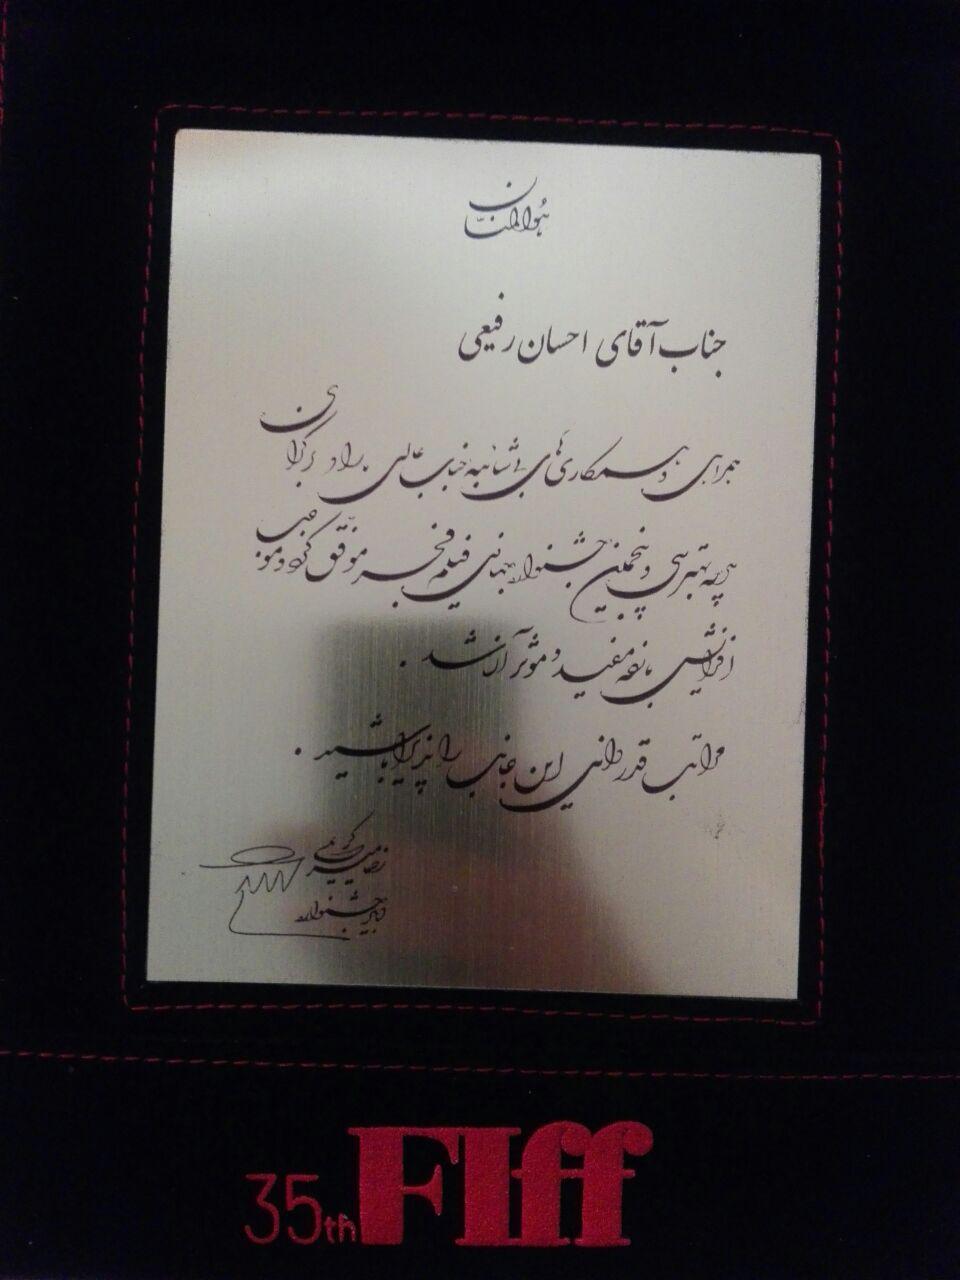 هُوالمنّان
جناب آقای احسان رفیعی
همراهی و همکاری‌های بی شائبه جناب عالی ما را در برگزاری
هر چه بهتر سی و پنجمین جشنواره جهانی فیلم فجر موفق کرده و موجب
افزایش بازده مفید و مؤثر آن شد.
مراتب قدردانی این جانب را پذیرا باشید.
رضا میرکریمی
دبیر جشنواره
35th FIff